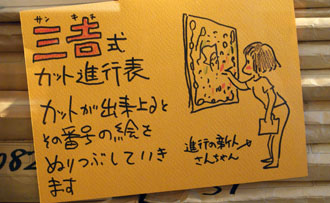 サンキチ
三吉式
カット進行表
カットが出来上ると
その番号の絵を
ぬりつぶしていき
ます
進行の新人
さんちゃん